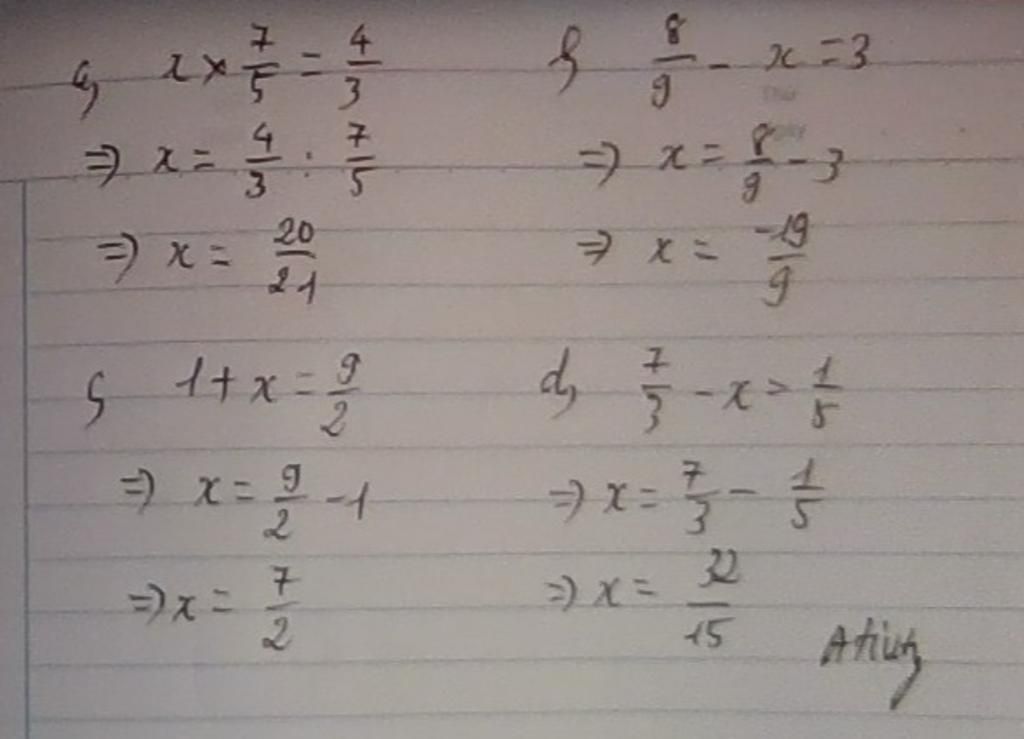 a, x × 7/5 = 4/3
⇒ x = 4/3 : 7/5
⇒ x = 20/21
b, 8/9 - x = 3
⇒ x = 8/9 - 3
⇒ x = -19/9
c, 1 + x = 9/2
⇒ x = 9/2 - 1
⇒ x = 7/2
d, 7/3 - x = 1/5
⇒ x = 7/3 - 1/5
⇒ x = 32/15